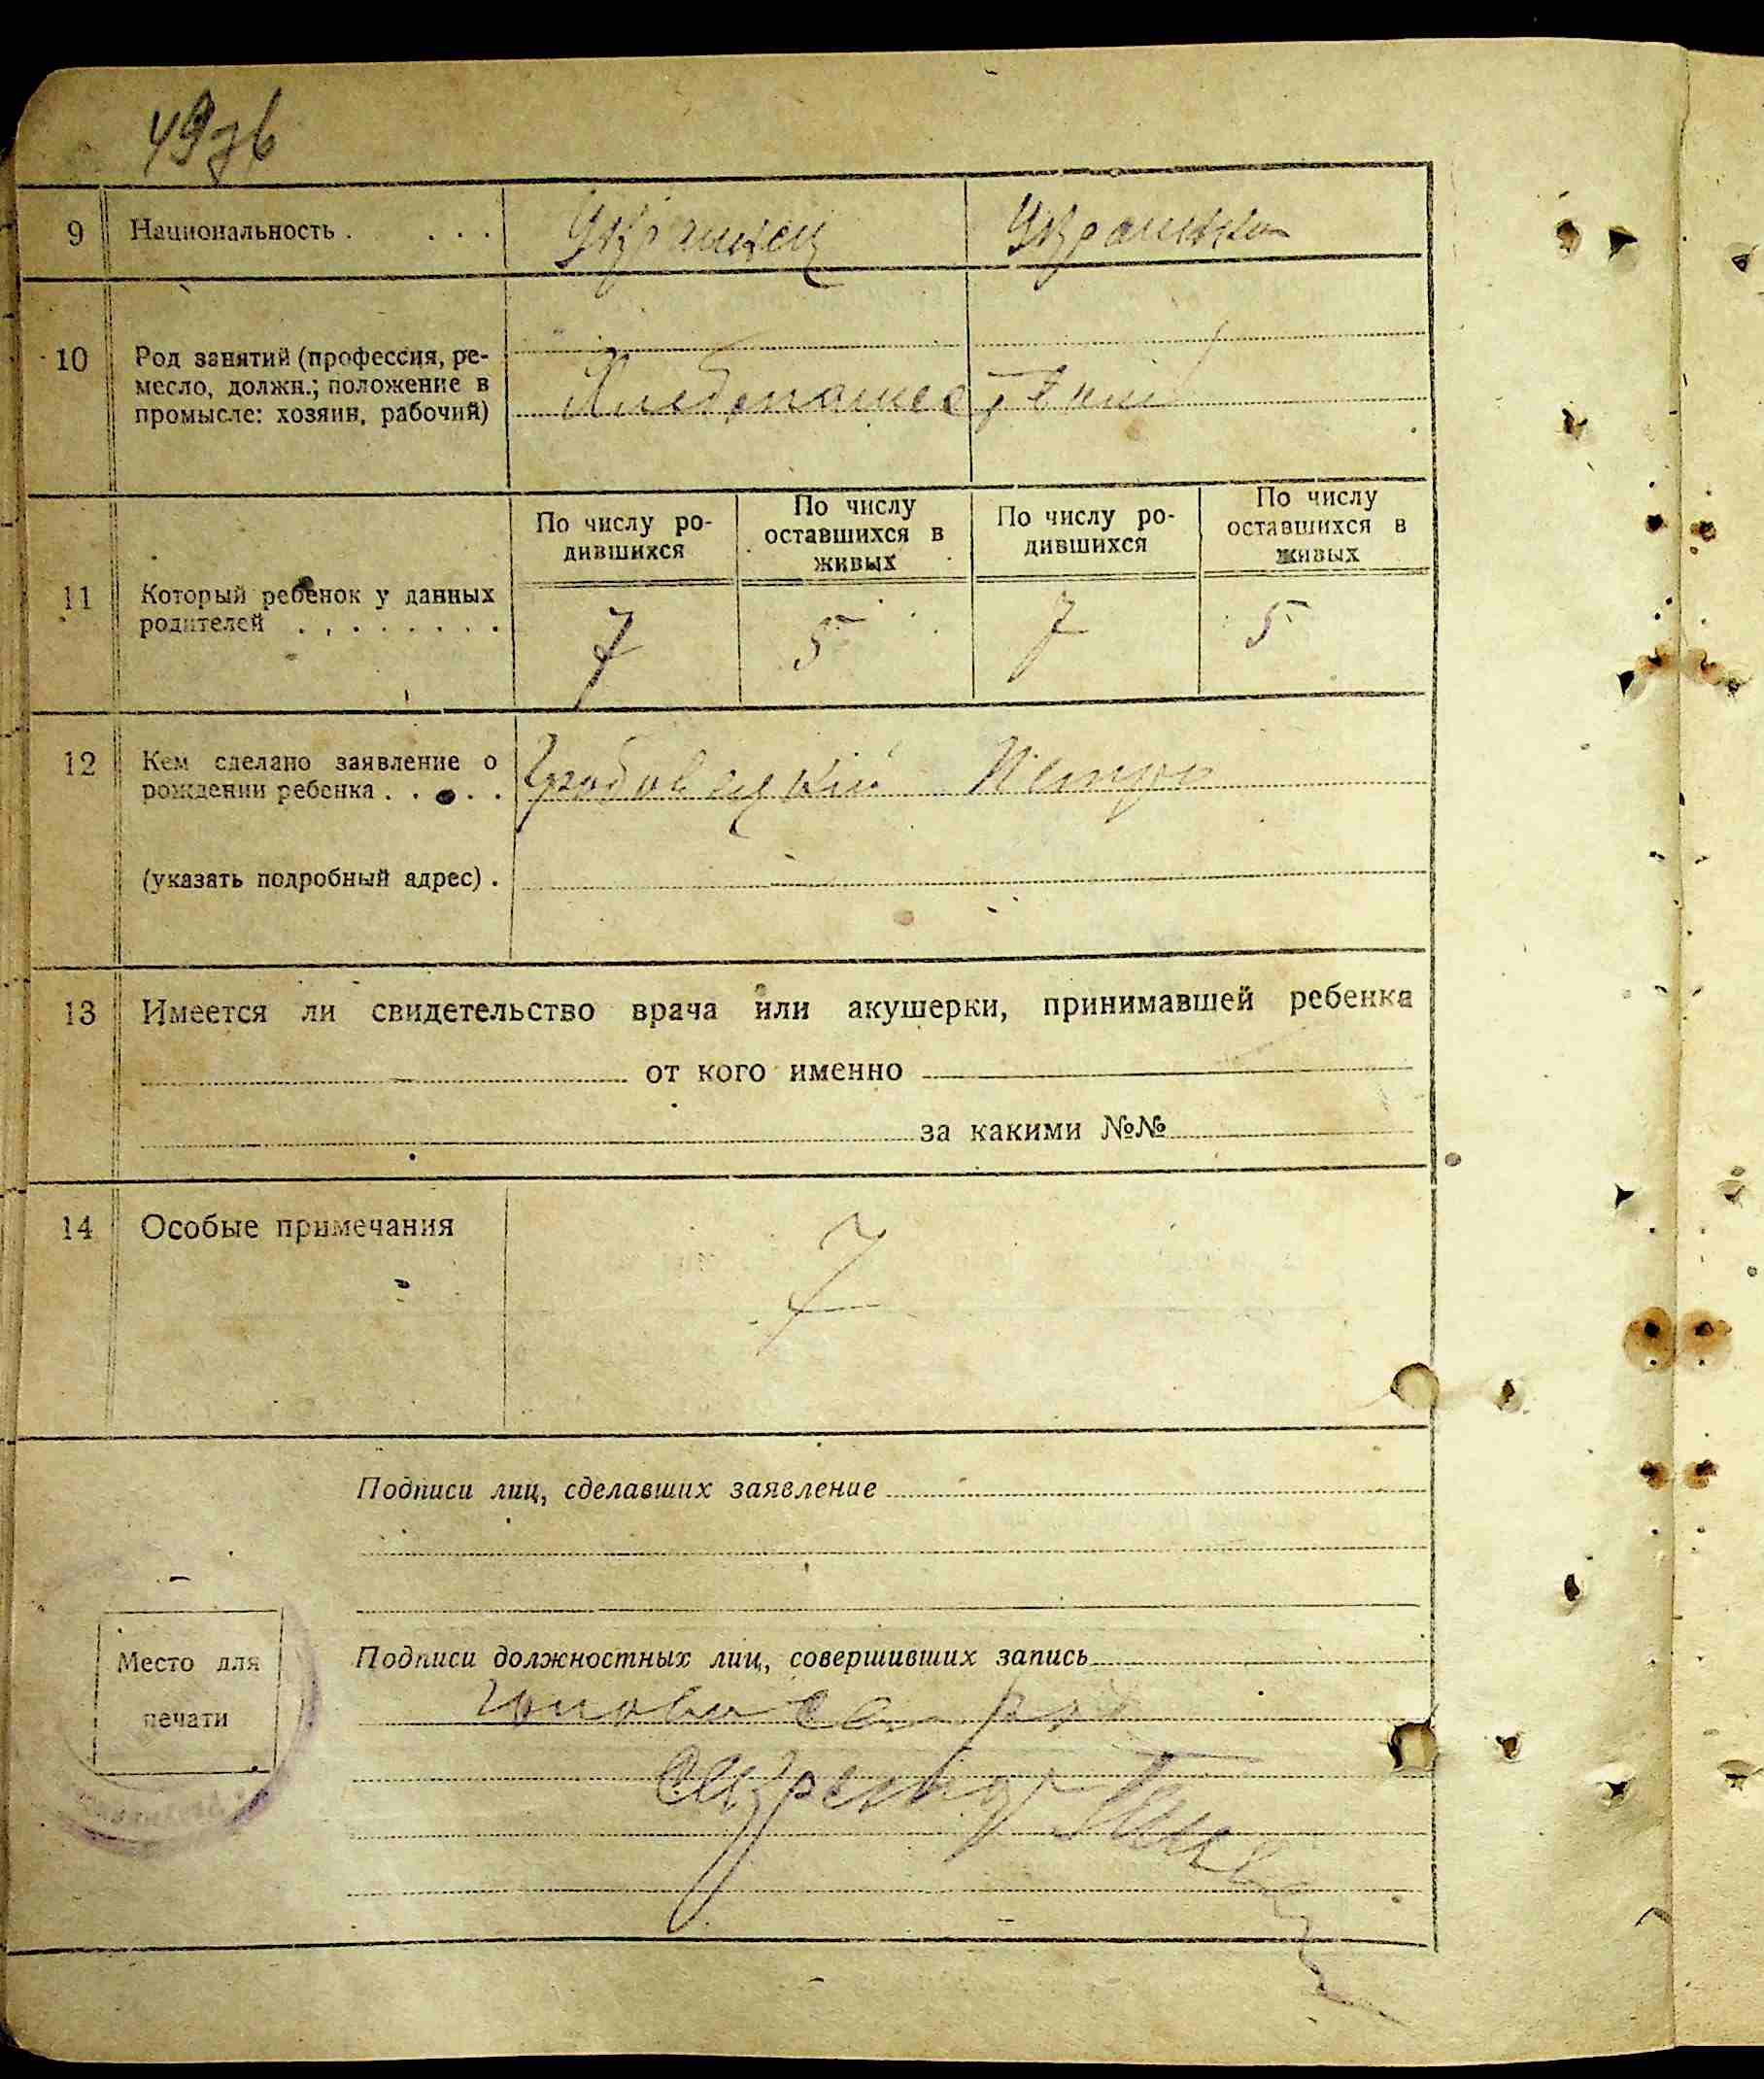 9 Национальность . . . . Украинец Украинка
10 Род занятий (профессия, ре-
месло, должн.; положение в
промысле: хозяин, рабочий)
Хлебопашество
11 Который ребенок у данных
родителей . . . . . . . .
По числу ро-
дившихся
По числу
оставшихся в
живых
По числу ро-
дившихся
По числу
оставшихся в
живых
7 5 7 5
12 Кем сделано заявление о
рождении ребенка . . . . .
Петро
(указать подробный адрес) .
13 Имеется ли свидетельство врача или акушерки, принимавшей ребенка
от кого именно
за какими №№
14 Особые примечания
7
Подписи лиц, сделавших заявление
Подписи должностных лиц, совершивших запись
Голова
Место для
печати